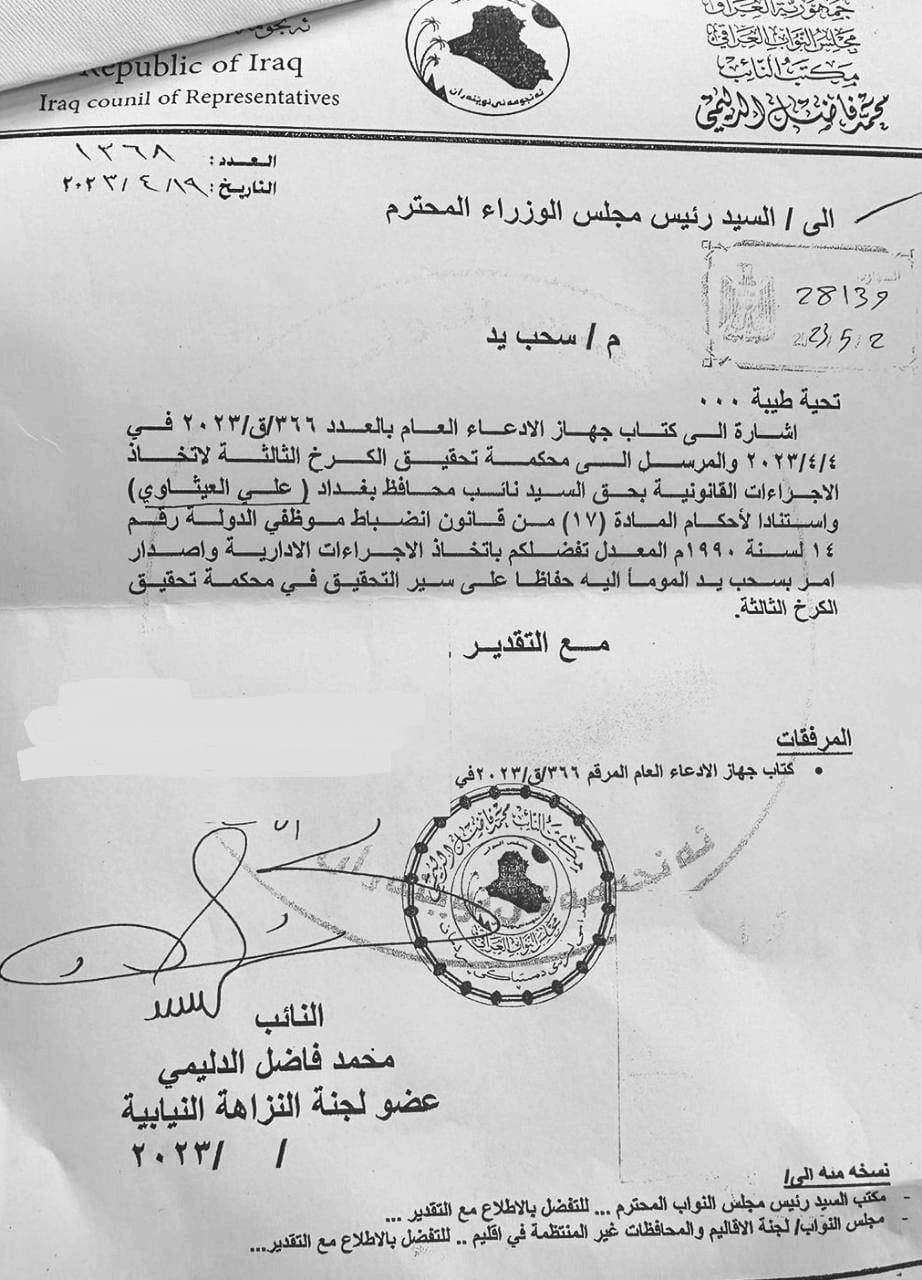 جمهورية العراق
مجلس النواب العراقي
مكتب النائب
محمد فاضل الدليمي
Republic of Iraq
Iraq counil of Representatives
ئەنجومەنی نوێنەران
العدد: ١٣٦٨
التاريخ: ٢٠٢٣/٤/١٩
الى / السيد رئيس مجلس الوزراء المحترم
28139
2023/5/2
م / سحب يد
تحية طيبة ...
اشارة الى كتاب جهاز الادعاء العام بالعدد ٣٦٦/ق/٢٠٢٣ في
٢٠٢٣/٤/٤ والمرسل الى محكمة تحقيق الكرخ الثالثة لاتخاذ
الاجراءات القانونية بحق السيد نائب محافظ بغداد ( علي العيثاوي)
واستنادا لأحكام المادة (١٧) من قانون انضباط موظفي الدولة رقم
١٤ لسنة ١٩٩٠م المعدل تفضلكم باتخاذ الاجراءات الادارية واصدار
امر بسحب يد المومأ اليه حفاظا على سير التحقيق في محكمة تحقيق
الكرخ الثالثة.
مع التقدير
المرفقات
• كتاب جهاز الادعاء العام المرقم ٣٦٦/ق/٢٠٢٣في
مكتب النائب محمد فاضل الدليمي
مجلس النواب العراقي
النائب
محمد فاضل الدليمي
عضو لجنة النزاهة النيابية
/ /٢٠٢٣
نسخه منه الى/
- مكتب السيد رئيس مجلس النواب المحترم ... للتفضل بالاطلاع مع التقدير ...
- مجلس النواب/ لجنة الاقاليم والمحافظات غير المنتظمة في اقليم .. للتفضل بالاطلاع مع التقدير...